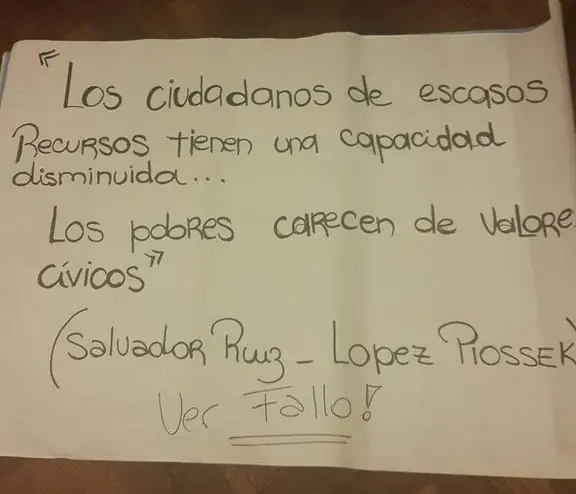 "Los ciudadanos de escasos
Recursos tienen una capacidad
disminuida...
Los pobres carecen de valore
cívicos"
(Salvador Ruiz - Lopez Piossek)
Ver Fallo!